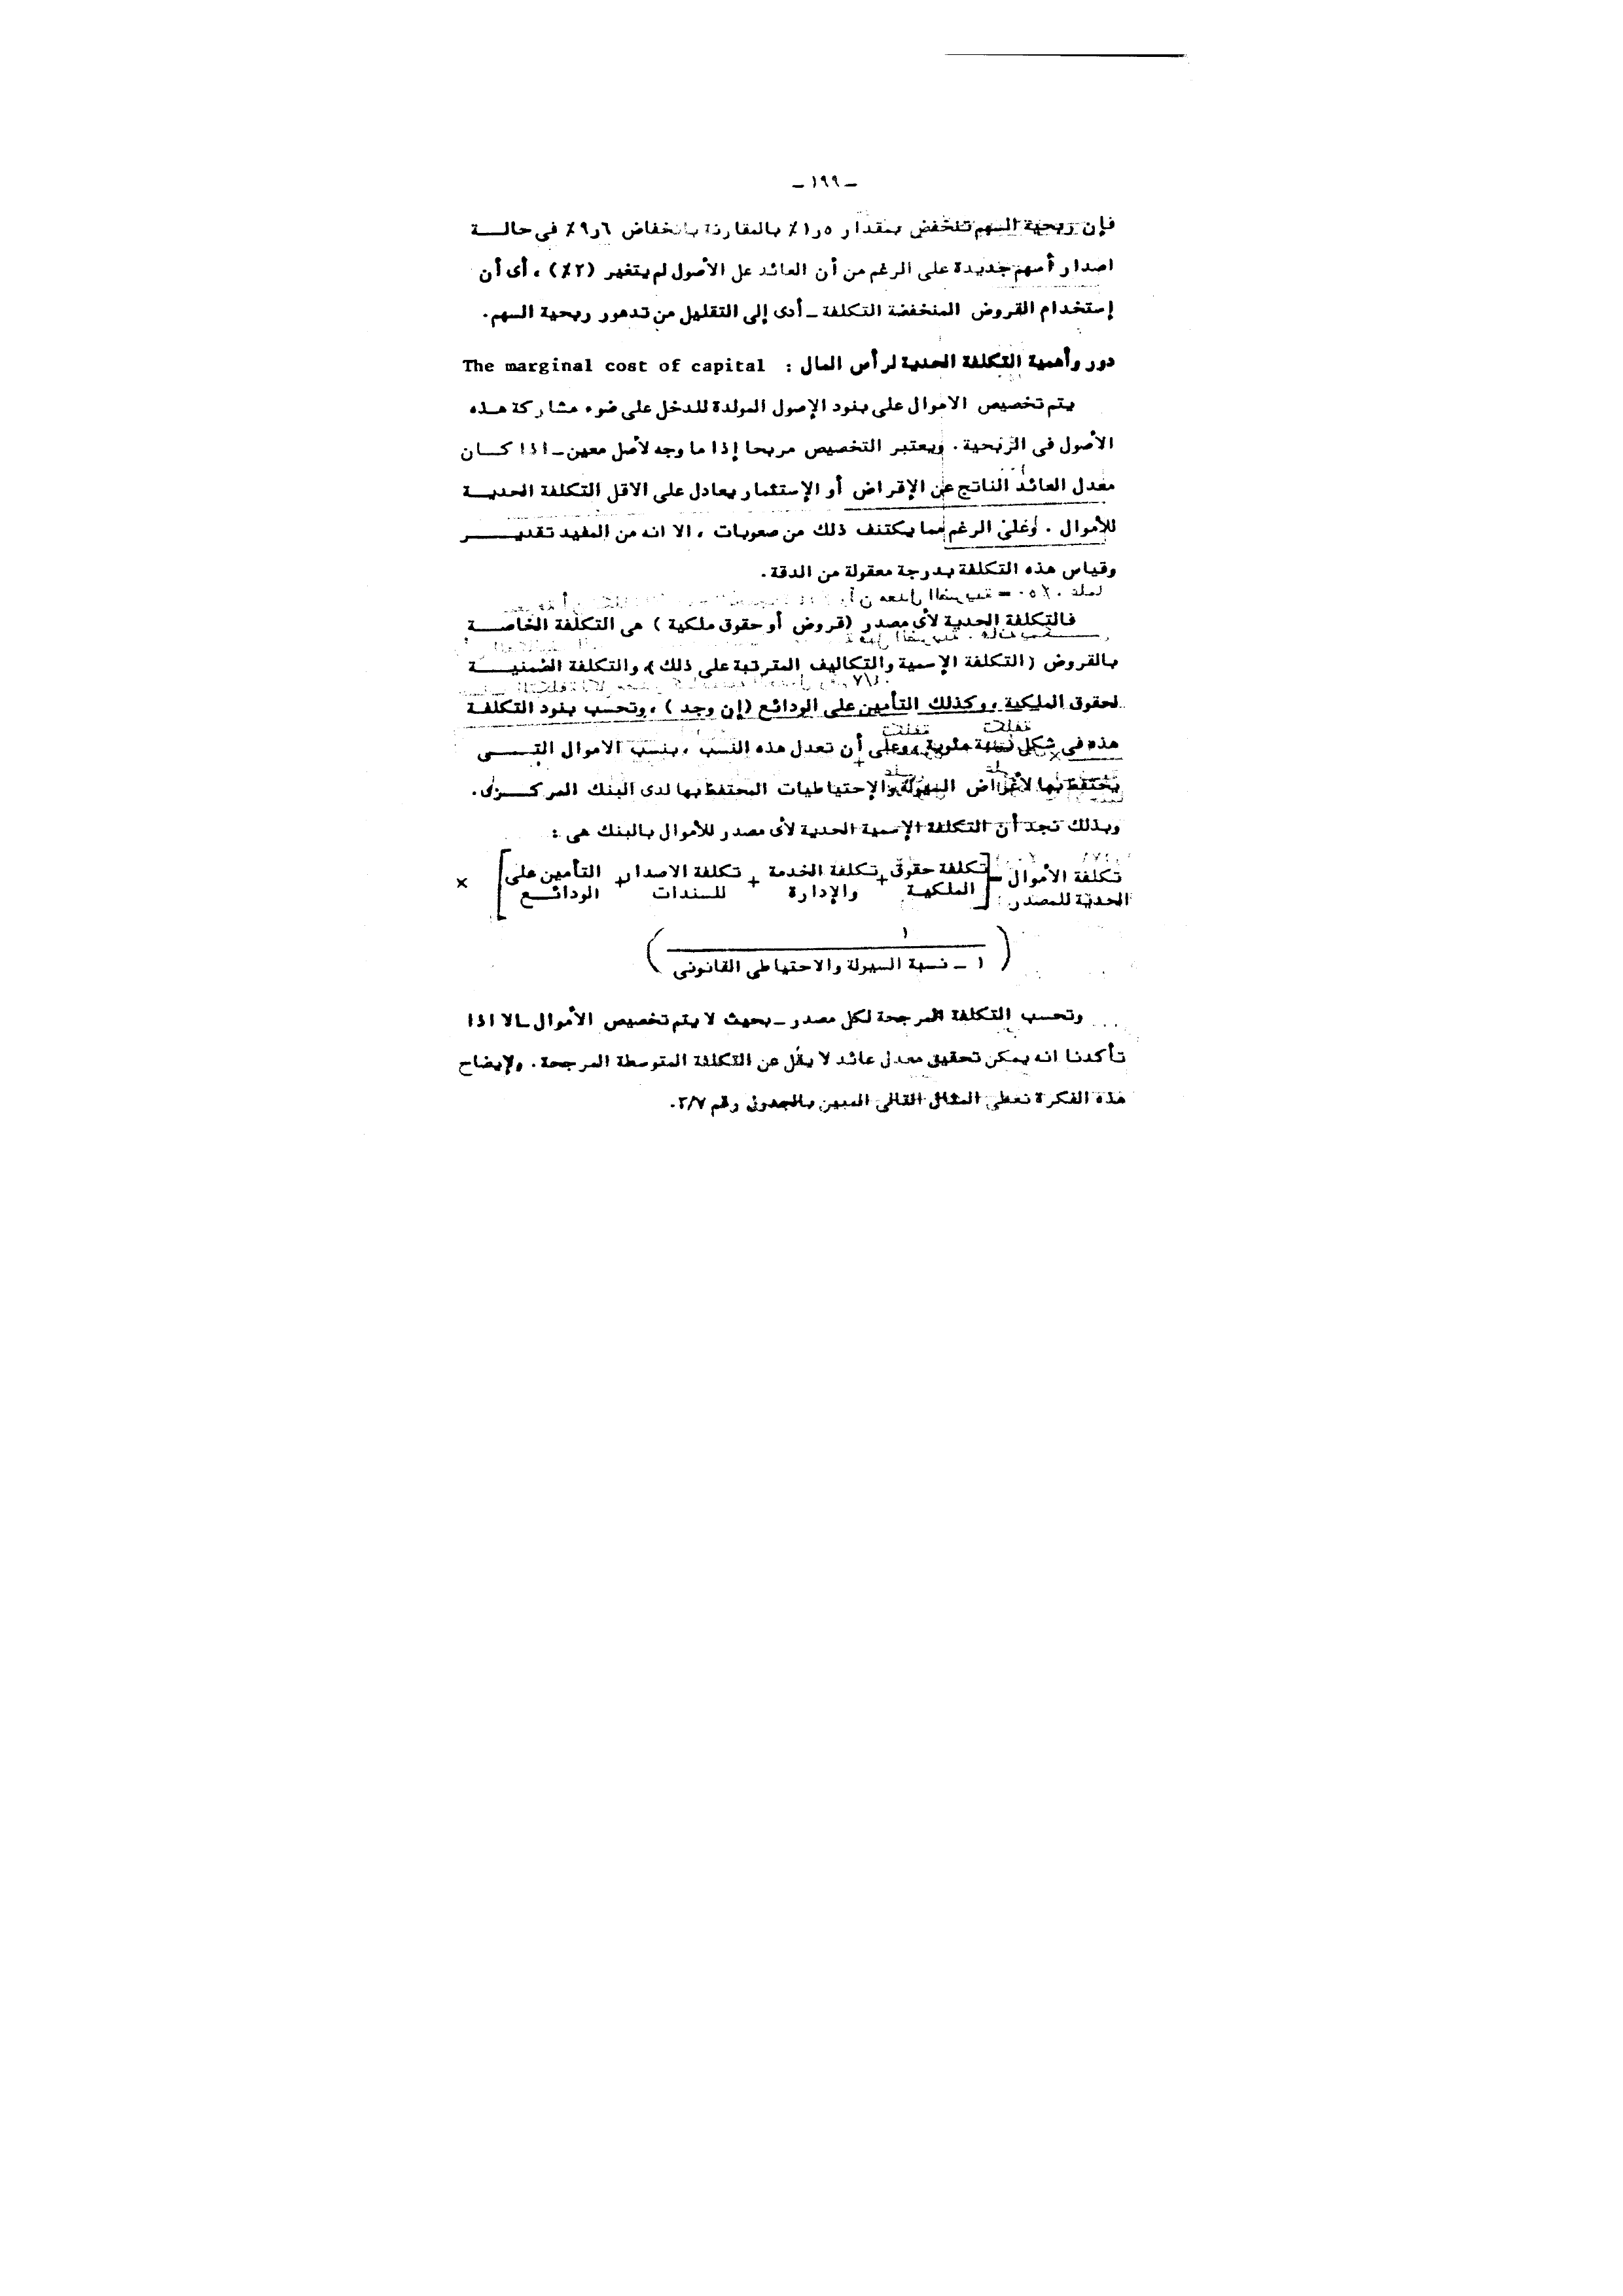 ــ ١٩٩ ــ
فإن ربحية السهم تنخفض بمقدار ٥ر١٪ بالمقارنة بانخفاض ٦ر٩٪ فى حالــــة
اصدار أسهم جديدة على الرغم من أن العائد عل الأصول لم يتغير (٢٪) ، أى أن
إستخدام القروض المنخفضة التكلفة ــ أدى إلى التقليل من تدهور ربحية السهم.
دور وأهمية التكلفة الحدية لرأس المال : The marginal cost of capital
يتم تخصيص الاموال على بنود الإصول المولدة للدخل على ضوء مشاركة هــذه
الأصول فى الربحية. ويعتبر التخصيص مربحا إذا ما وجه لأصل معين ــ اذا كــــان
معدل العائد الناتج عن الإقراض أو الإستثمار يعادل على الاقل التكلفة الحديــــة
للأموال . وعلى الرغم مما يكتنف ذلك من صعوبات ، الا انه من المفيد تقديـــــــر
وقياس هذه التكلفة بدرجة معقولة من الدقة.
فالتكلفة الحدية لأى مصدر (قروض أو حقوق ملكية ) هى التكلفة الخاصــــة
بالقروض (التكلفة الإسمية والتكاليف المترتبة على ذلك )، والتكلفة الضمنيـــــة
لحقوق الملكية ، وكذلك التأمين على الودائع (إن وجد ) ، وتحسب بنود التكلفـة
هذه فى شكل نسبة مئوية ، وعلى أن تعدل هذه النسب ، بنسب الاموال التــــى
يحتفظ بها لأغراض السيولة والإحتياطيات المحتفظ بها لدى البنك المركـــزى.
وبذلك نجد أن التكلفة الإسمية الحدية لأى مصدر للأموال بالبنك هى :
تكلفة الأموال = [تكلفة حقوق + تكلفة الخدمة + تكلفة الاصدار + التأمين على] ×
الحدية للمصدر الملكية والإدارة للسندات الودائـــع
( ١
١ ــ نسبة السيولة والاحتياطى القانونى )
وتحسب التكلفة المرجحة لكل مصدر ــ بحيث لا يتم تخصيص الأموال ــ الا اذا
تأكدنا انه يمكن تحقيق معدل عائد لا يقل عن التكلفة المتوسطة المرجحة. ولإيضاح
هذه الفكرة نعطى المثال التالى المبين بالجدول رقم ٢/٧.